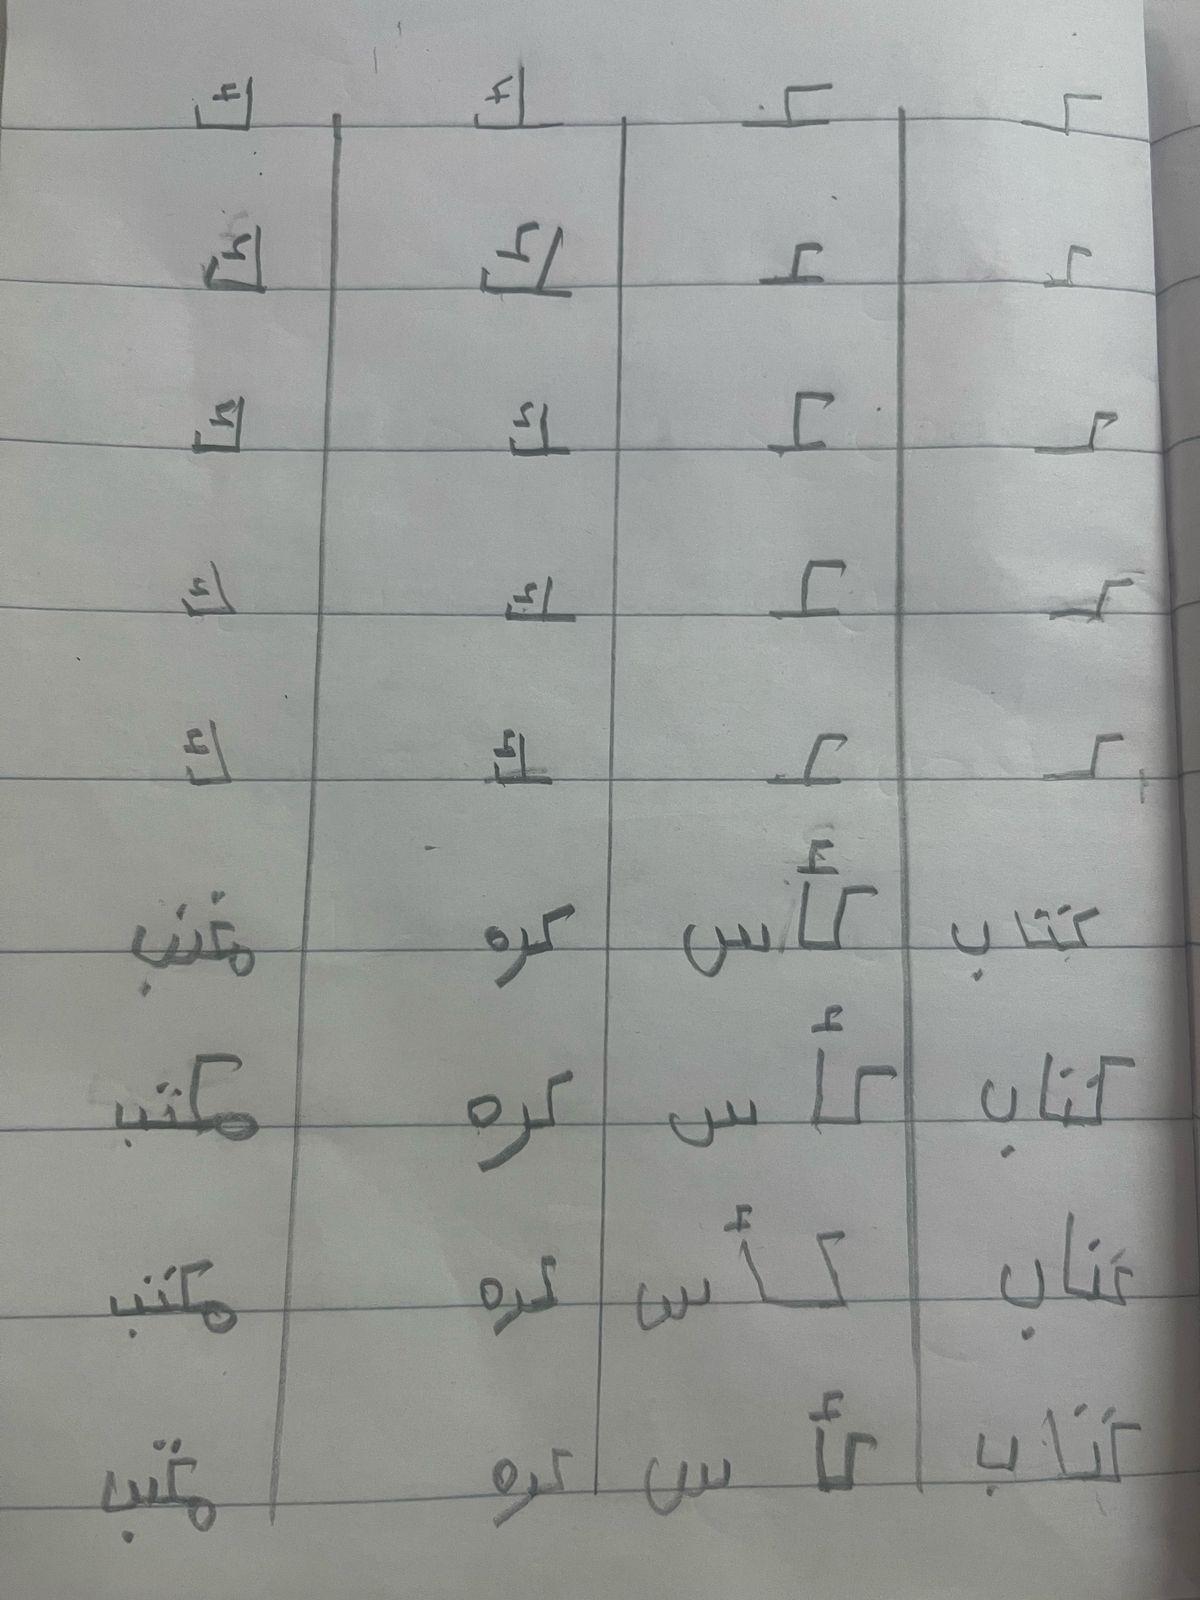 كـ ـكـ ـك ك
كـ ـكـ ـك ك
كـ ـكـ ـك ك
كـ ـكـ ـك ك
كـ ـكـ ـك ك
كتاب كأس كره مكتب
كتاب كأس كره مكتب
كتاب كأس كره مكتب
كتاب كأس كره مكتب